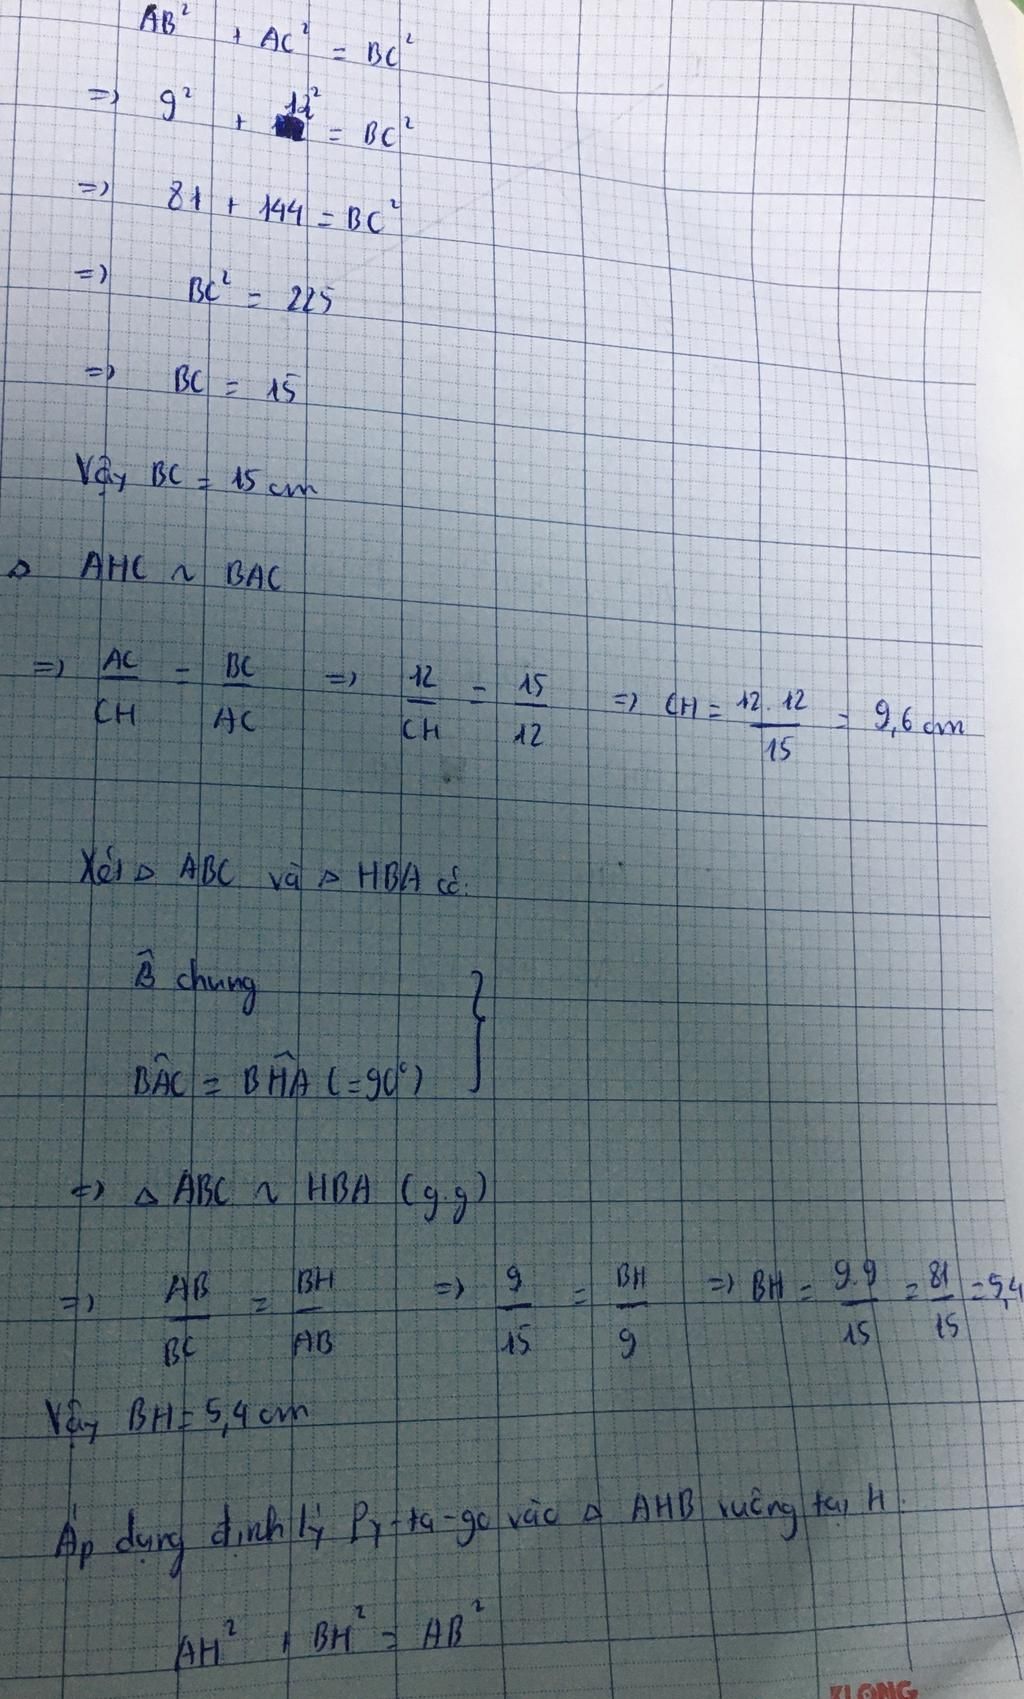 AB² + AC² = BC²
=> 9² + 12² = BC²
=> 81 + 144 = BC²
=> BC² = 225
=> BC = 15
Vậy BC = 15 cm
△ AHC ~ BAC
=> AC/CH = BC/AC => 12/CH = 15/12 => CH = 12.12/15 = 9,6 cm
Xét △ ABC và △ HBA có:
B̂ chung
BÂC = BĤA (=90°) }
=> △ ABC ~ HBA (g.g)
=> AB/BC = BH/AB => 9/15 = BH/9 => BH = 9.9/15 = 81/15 = 5,4
Vậy BH = 5,4 cm
Áp dụng định lý Py-ta-go vào △ AHB vuông tại H.
AH² + BH² = AB²
KLONG